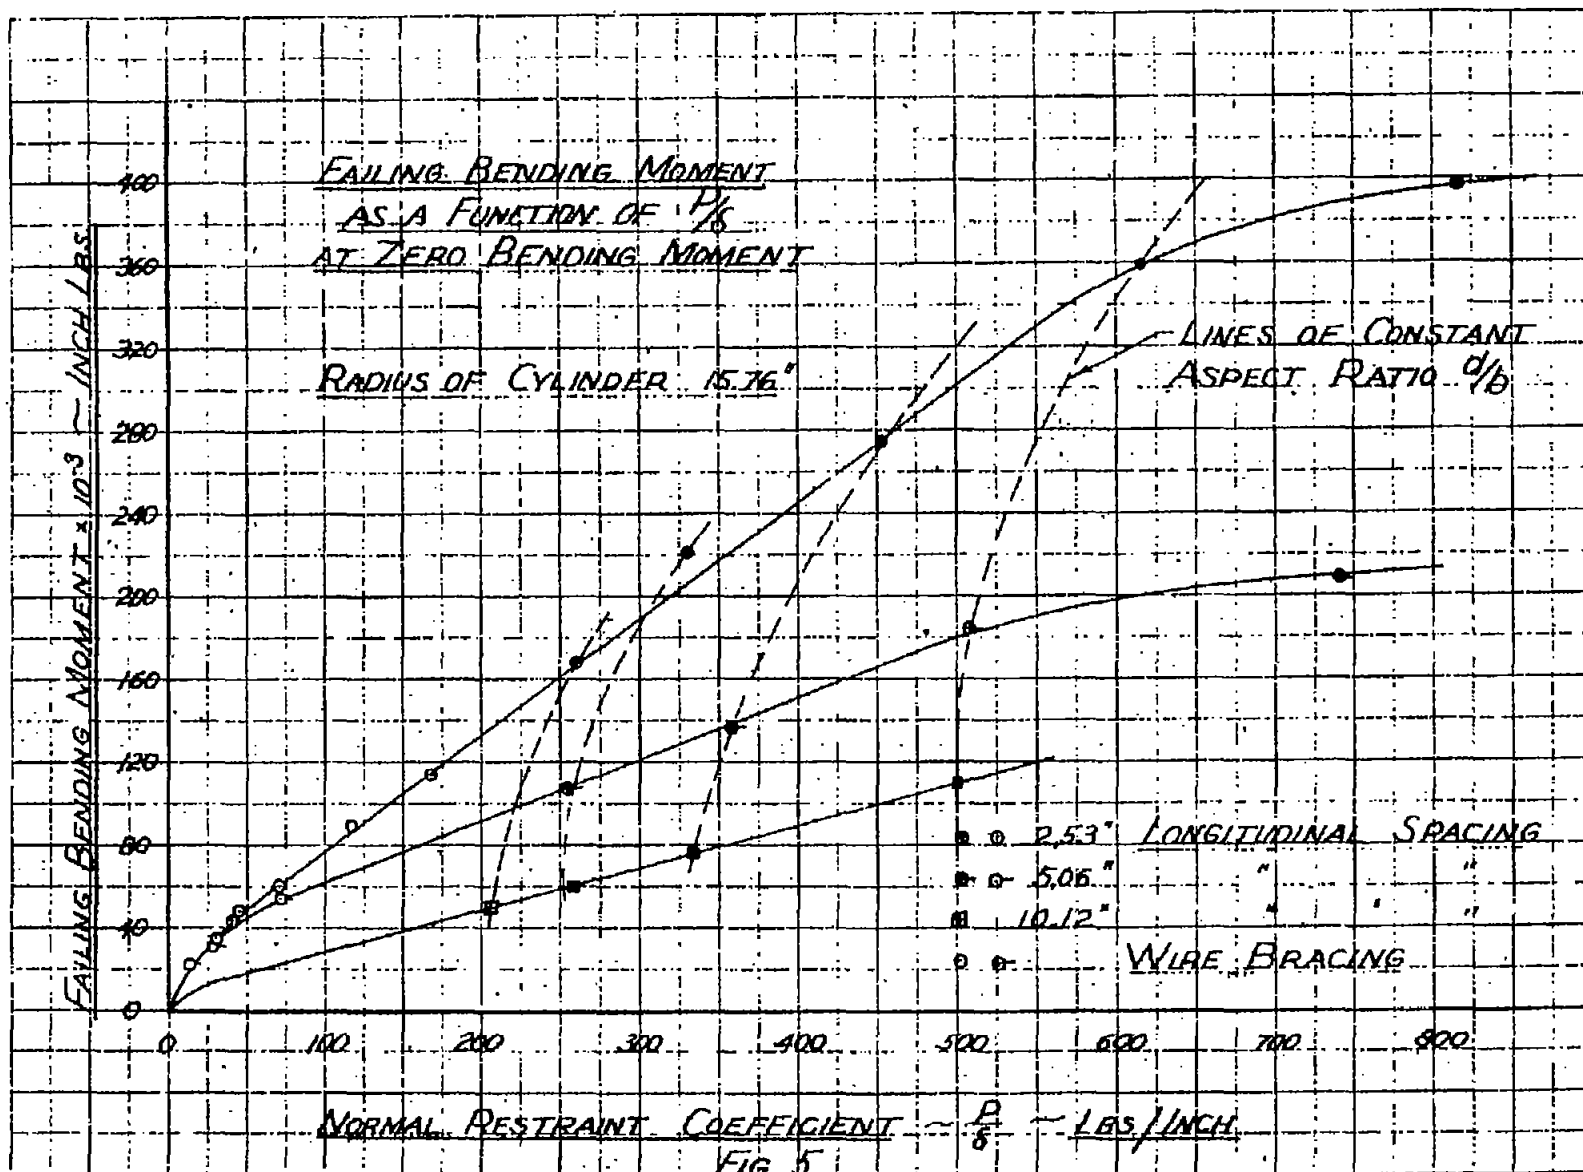 FAILING BENDING MOMENT
AS A FUNCTION OF P/δ
AT ZERO BENDING MOMENT
RADIUS OF CYLINDER 15.76"
LINES OF CONSTANT
ASPECT RATIO d/b
FAILING BENDING MOMENT × 10⁻³ ~ INCH LBS.
400
360
320
280
240
200
160
120
80
40
0
2.53" LONGITUDINAL SPACING
5.06" " "
10.12" " " "
WIRE BRACING
0 100 200 300 400 500 600 700 800
NORMAL RESTRAINT COEFFICIENT ~ P/δ ~ LBS/INCH
FIG 5